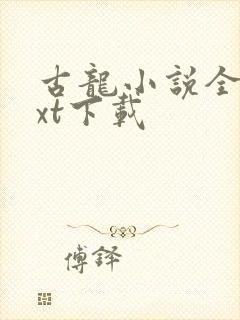 古龍小説全
xt下載
傅鐸